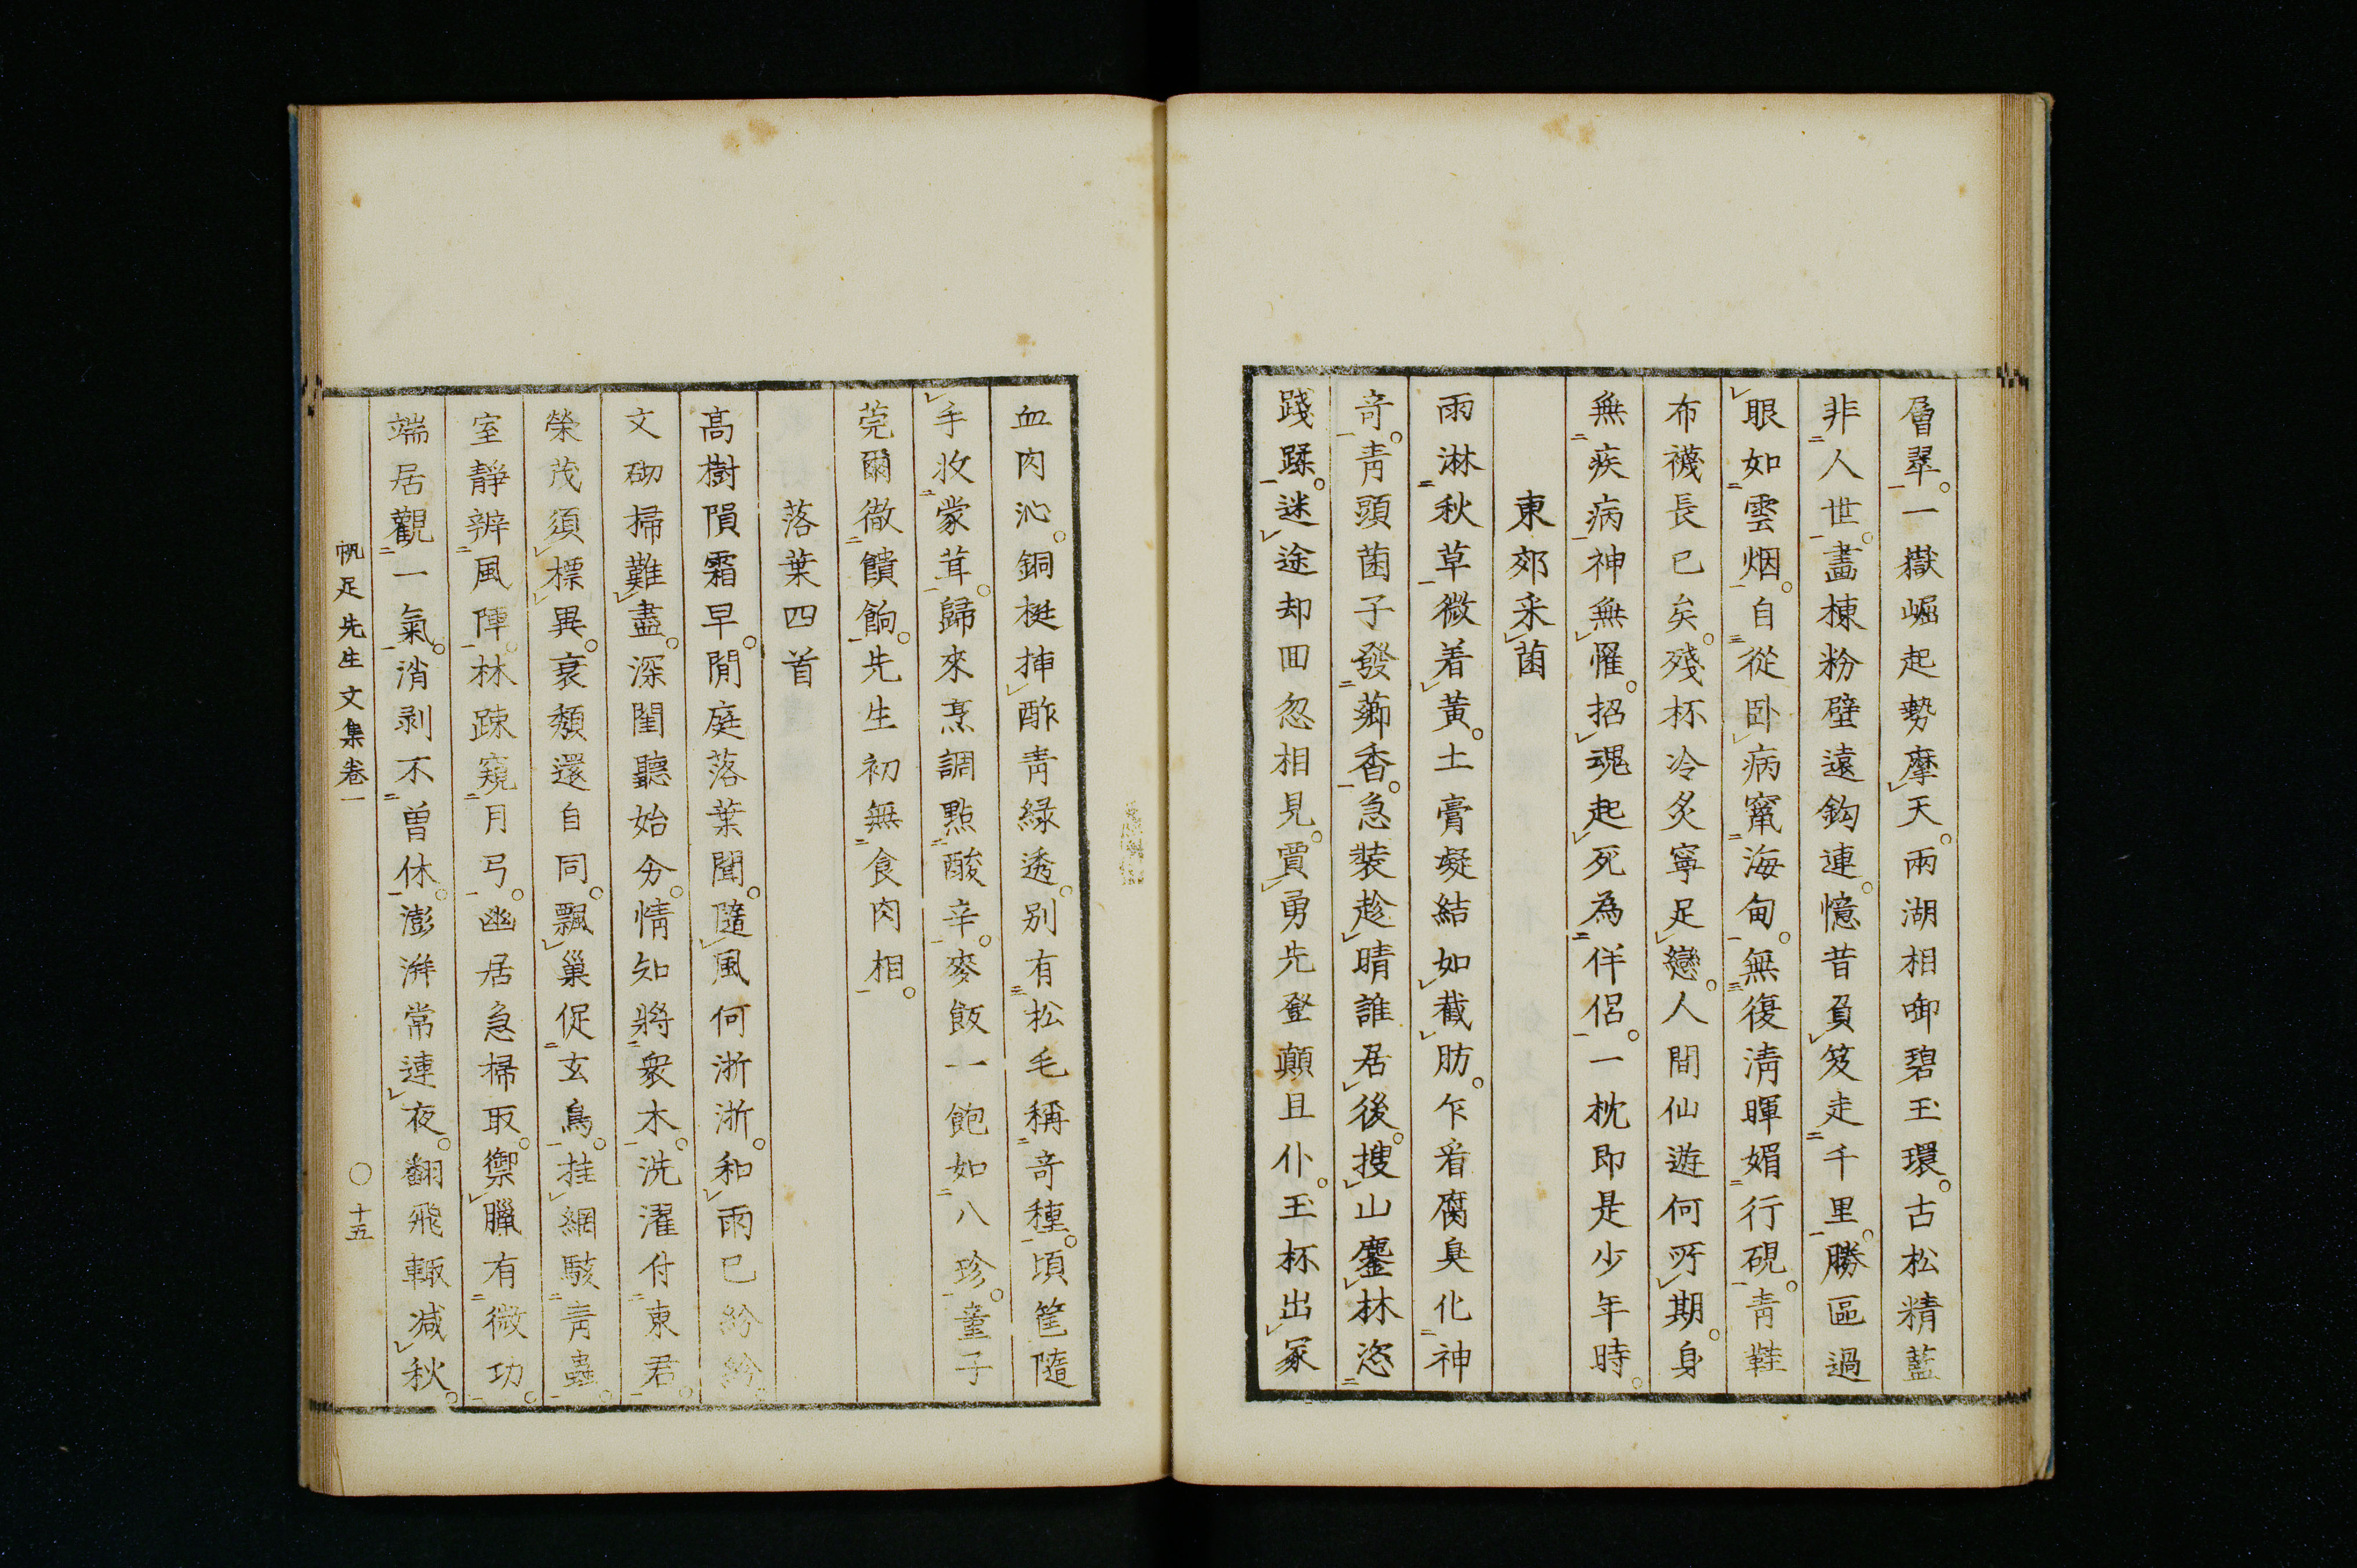 層翠。一嶽崛起勢摩天。兩湖相啣碧玉環。古松精藍
非人世。畫棟粉壁遠鈎連。憶昔負笈走千里。勝區過
眼如雲烟。自從卧病竄海甸。無復淸暉媚行硯。青鞋
布襪長已矣。殘杯冷炙寧足戀。人間仙遊何所期。身
無疾病神無罹。招魂起死為伴侶。一枕即是少年時。
東郊采菌
雨淋秋草微着黃。土膏凝結如截肪。乍看腐臭化神
奇。靑頭菌子發薌香。急裝趁晴誰居後。搜山鏖林恣
踐蹂。迷途却回忽相見。賈勇先登顚且仆。玉杯出冢
血肉沁。銅梃挿酢靑緑透。別有松毛稱奇種。頃筐隨
手收蒙茸。歸來烹調點酸辛。麥飯一飽如八珍。童子
莞爾徹饋餉。先生初無食肉相。
落葉四首
髙樹隕霜早。閒庭落葉聞。隨風何淅淅。和雨已紛紛。
文砌掃難盡。深閨聽始分。情知將衆木。洗濯付東君。
榮茂須標異。衰頽還自同。飄巢促玄鳥。挂網駭靑蟲。
室靜辨風陣。林疎窺月弓。幽居急掃取。禦臘有微功。
端居觀一氣。消剥不曾休。澎湃常連夜。翻飛輙减秋。
帆足先生文集卷一
〇十五